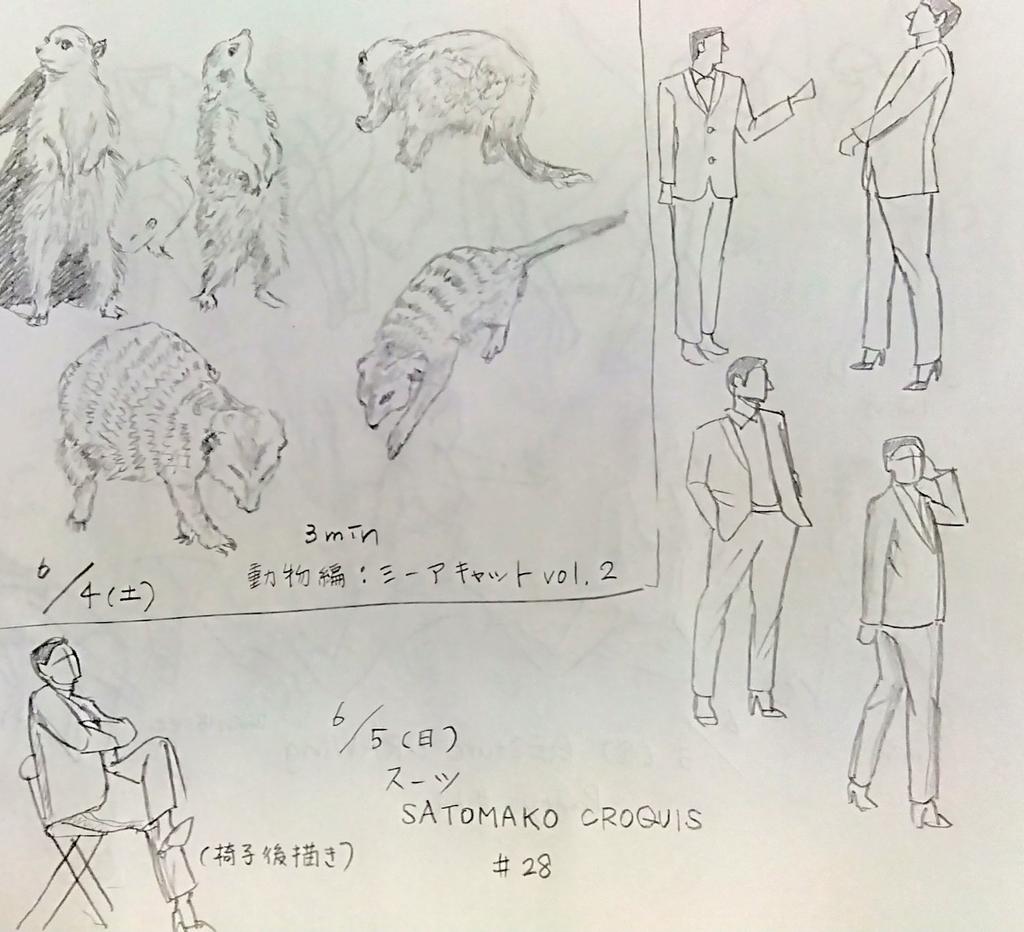 3min
動物編：ミーアキャットvol.2
6/4(土)
6/5(日)
スーツ
SATOMAKO CROQUIS
#28
(椅子後描き)